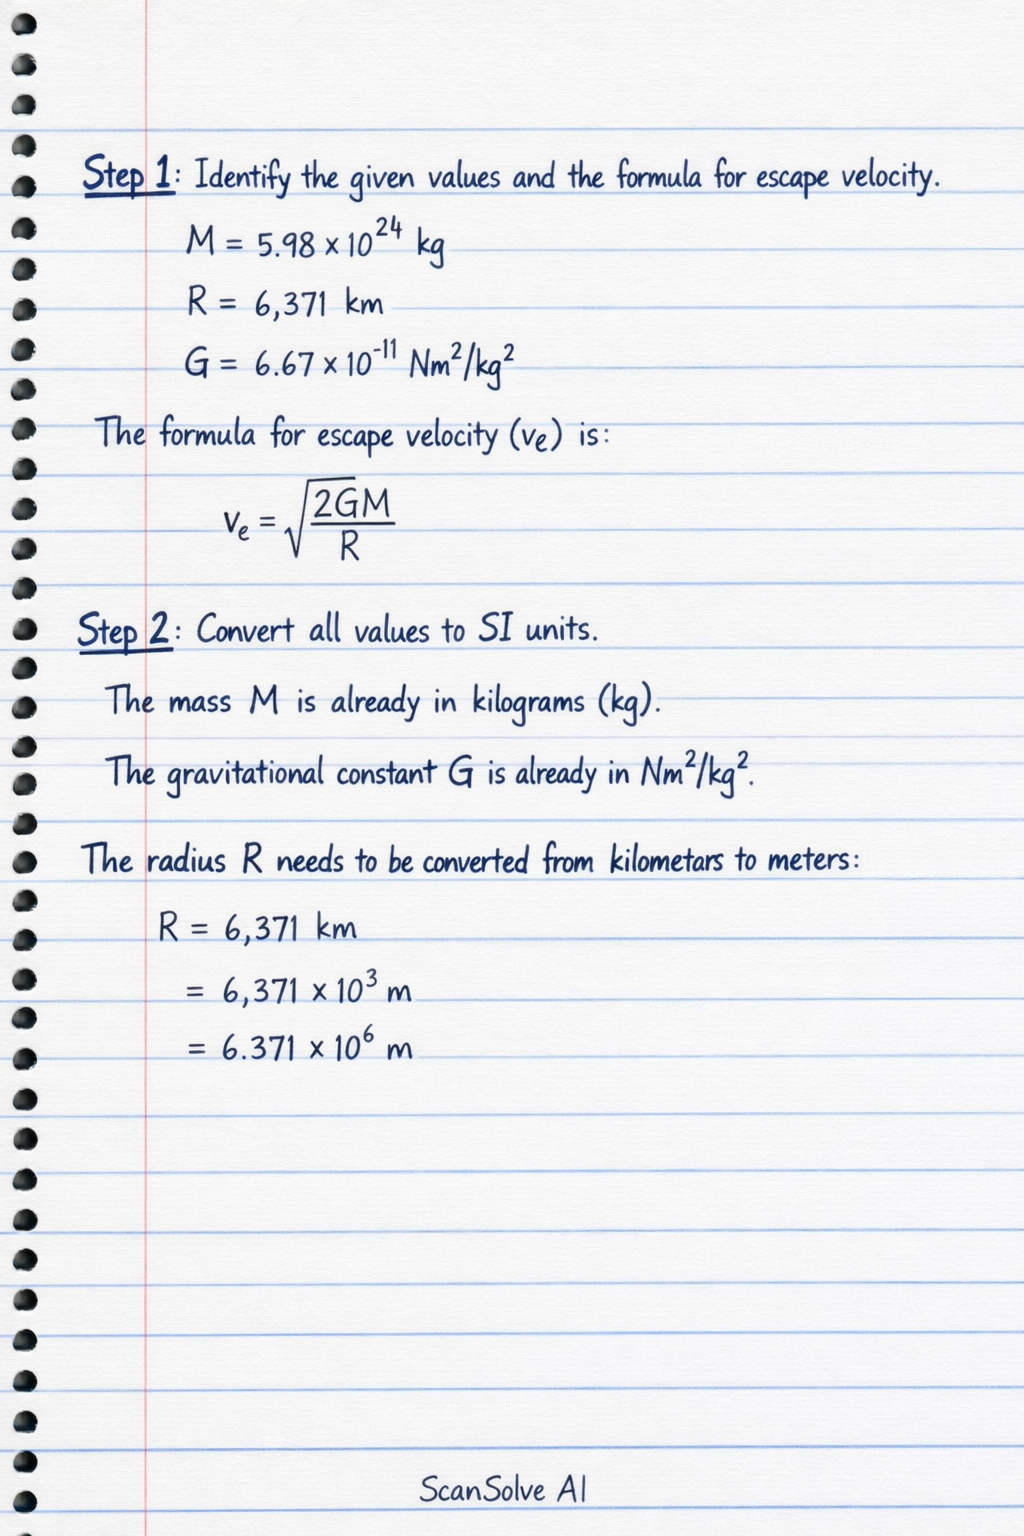 Step 1: Identify the given values and the formula for escape velocity.
M = 5.98 × 10^24 kg
R = 6,371 km
G = 6.67 × 10^-11 Nm²/kg²
The formula for escape velocity (vₑ) is:
vₑ = √(2GM/R)
Step 2: Convert all values to SI units.
The mass M is already in kilograms (kg).
The gravitational constant G is already in Nm²/kg².
The radius R needs to be converted from kilometars to meters:
R = 6,371 km
= 6,371 × 10³ m
= 6.371 × 10⁶ m
ScanSolve AI